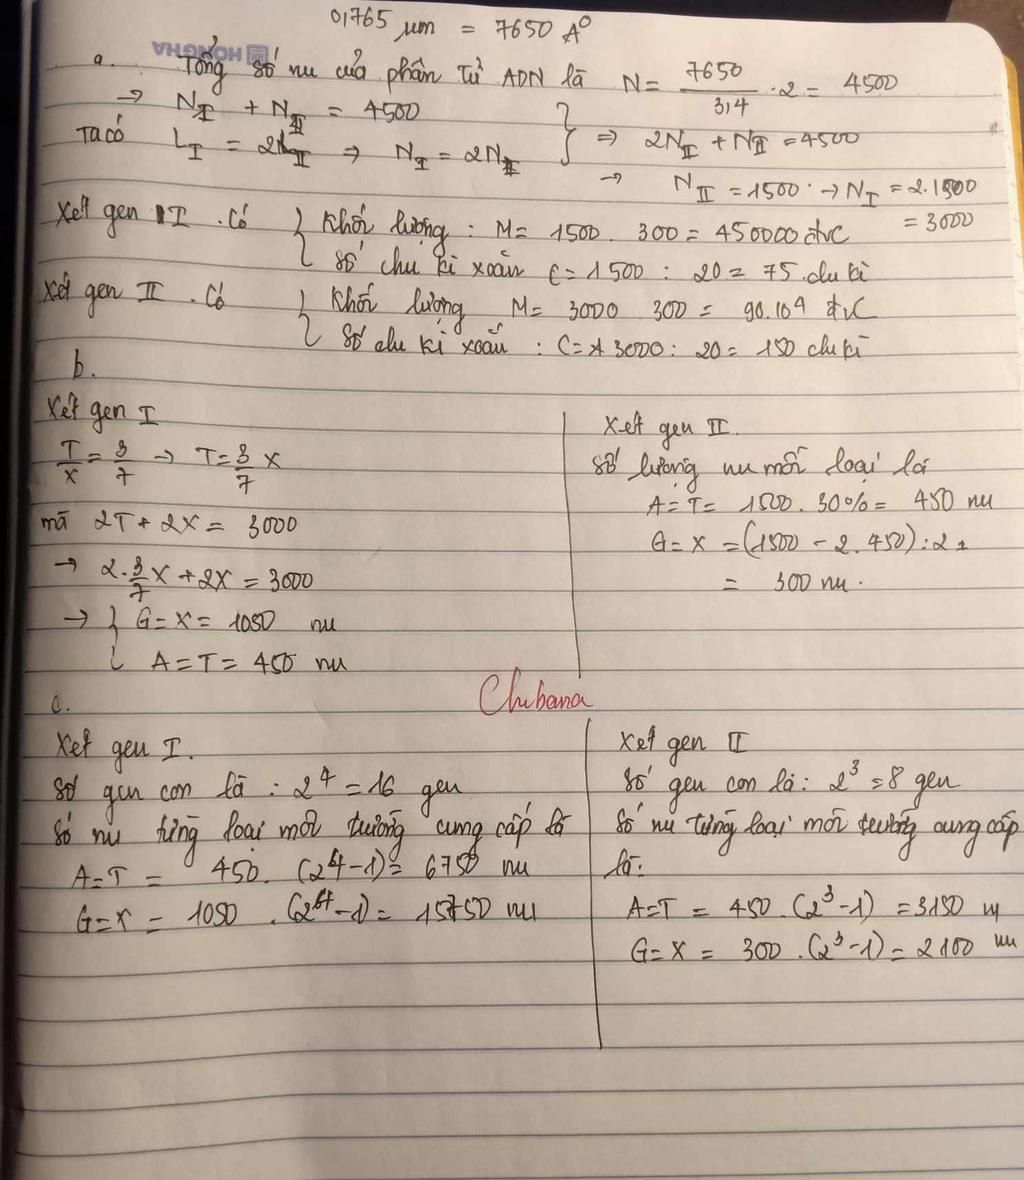 0,765 µm = 7650 A°
HONGHA
a. Tổng số nu của phân tử ADN là N = 7650/3,4 . 2 = 4500
→ N_I + N_II = 4500
Ta có L_I = 2L_II ⇒ N_I = 2N_II } ⇒ 2N_II + N_II = 4500
→ N_II = 1500 → N_I = 2.1500
= 3000
Xét gen I . Có { Khối lượng : M = 1500 . 300 = 450000 đvC
số chu kì xoắn C = 1500 : 20 = 75 chu kì
Xét gen II . Có { Khối lượng M = 3000 . 300 = 90.10⁴ đvC
Số chu kì xoắn : C = 3000 : 20 = 150 chu kì
b.
Xét gen I
T/X = 3/7 → T = 3/7 X
mà 2T + 2X = 3000
→ 2. 3/7 X + 2X = 3000
→ { G = X = 1050 nu
A = T = 450 nu
Xét gen II
Số lượng nu mỗi loại là
A = T = 1500 . 30% = 450 nu
G = X = (1500 - 2.450) : 2
= 300 nu.
Chibana
c.
Xét gen I.
Số gen con là : 2⁴ = 16 gen
Số nu từng loại môi trường cung cấp là
A = T = 450 . (2⁴ - 1) = 6750 nu
G = X = 1050 . (2⁴ - 1) = 15750 nu
Xét gen II
Số gen con là : 2³ = 8 gen
Số nu từng loại môi trường cung cấp
là:
A = T = 450 . (2³ - 1) = 3150 nu
G = X = 300 . (2³ - 1) = 2100 nu